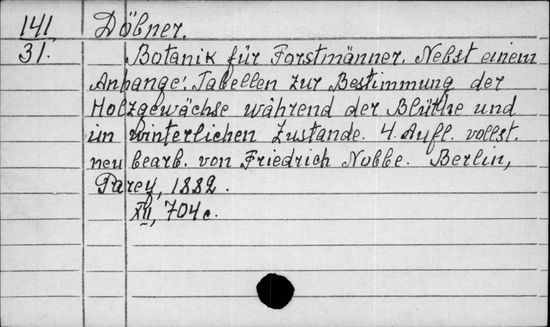 141 Döbner.
31. Botanik für Forstmänner. Nebst einem
Anhange: Tabellen zur Bestimmung der
Holzgewächse während der Blüthe und
im winterlichen Zustande. 4. Aufl. vollst.
neu bearb. von Friedrich Nobbe. Berlin,
Parey, 1882.
XII, 704 c.